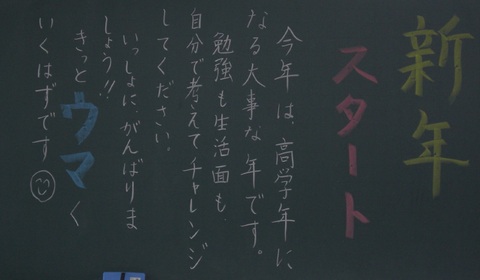 新年
スタート
今年は、高学年に
なる大事な年です。
勉強も生活面も
自分で考えてチャレンジ
してください。
いっしょに、がんばりま
しょう!!
きっとウマく
いくはずです